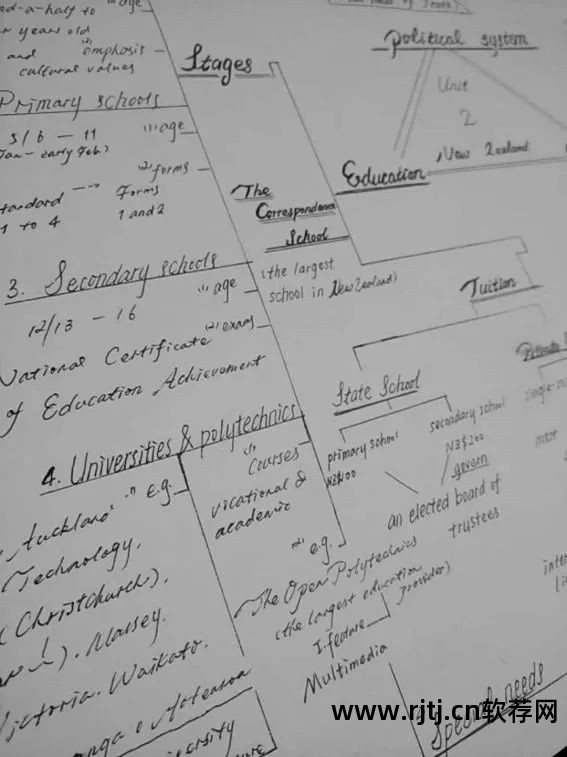 nd-a-half to
(1) age
years old
and
(2) emphasis
cultural values
Stages
Primary schools
5/6 - 11
(1) age
Jan - early Feb)
(2) forms
Standard
Forms
1 to 4
1 and 2
3. Secondary schools
(1) age
12/13 - 16
(2) exam
National Certificate
of Education Achievement
4. Universities & polytechnics
(1) e.g.
Auckland
Technology.
(Christchurch).
). Massey.
Victoria. Waikato.
o Aotearoa
(1)
Courses
vocational &
academic
(2) e.g.
The Open Polytechnics
(the largest education
provider)
1. feature
Multimedia
The
Correspondence
School
(the largest
school in New Zealand)
Political system
Unit
2
New Zealand
Education
Tuition
State School
primary school
NZ$100
secondary school
NZ$200
govern
an elected board of
trustees
Private
most
Special needs
www.rjtj.cn软荐网